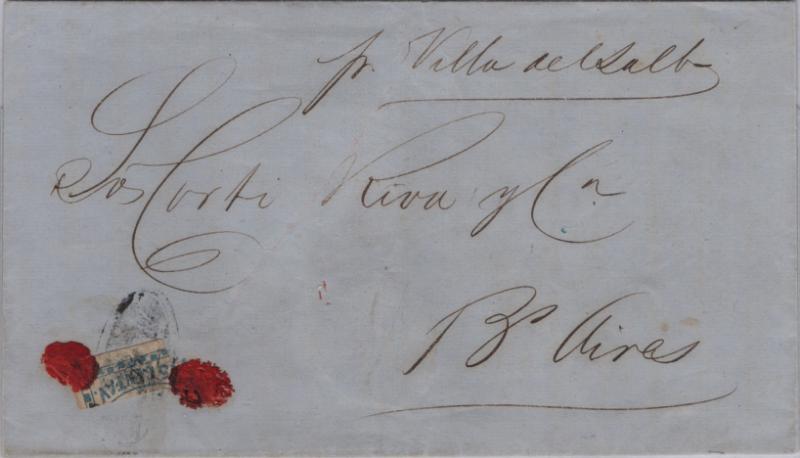 pr. Villa del Salto
Sres Corti Riva y Ca
Bs Aires